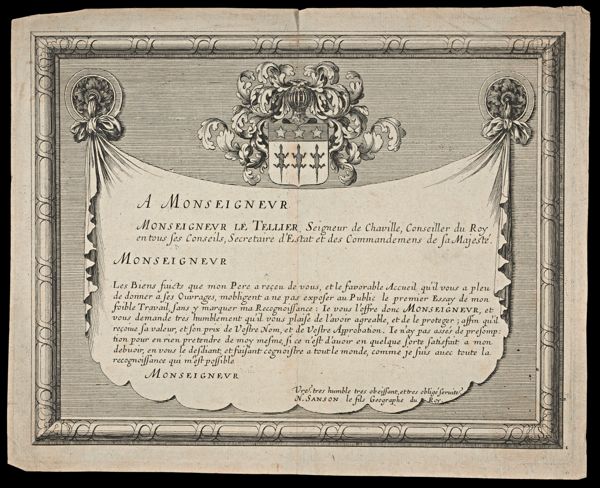 A MONSEIGNEVR
MONSEIGNEVR LE TELLIER Seigneur de Chaville, Conseiller du Roy
en tous ses Conseils, Secretaire d'Estat et des Commandemens de sa Majesté.
MONSEIGNEVR
Les Biens faicts que mon Pere a reçeu de vous, et le favorable Accueil qu'il vous a pleu
de donner à ses Ouvrages, mobligent a ne pas exposer au Public le premier Essay de mon
foible Travail, sans y marquer ma Recognoissance: Ie vous l'offre donc MONSEIGNEVR, et
vous demande tres humblement qu'il vous plaise de l'avoir agreable, et de le proteger; affin qu'il
reçoiue sa valeur, et son prix de Vostre Nom, et de Vostre Approbation. Ie n'ay pas assés de presomp-
tion pour en rien pretendre de moy mesme, si ce n'est d'auoir en quelque sorte satisfait a mon
debuoir, en vous le dediant, et faisant cognoistre a tout le monde, comme je suis avec toute la
recognoissance qui m'est possible
MONSEIGNEVR
Vre. tres humble tres obeissant, et tres obligé seruitr.
N. SANSON le fils Geographe du Roy.